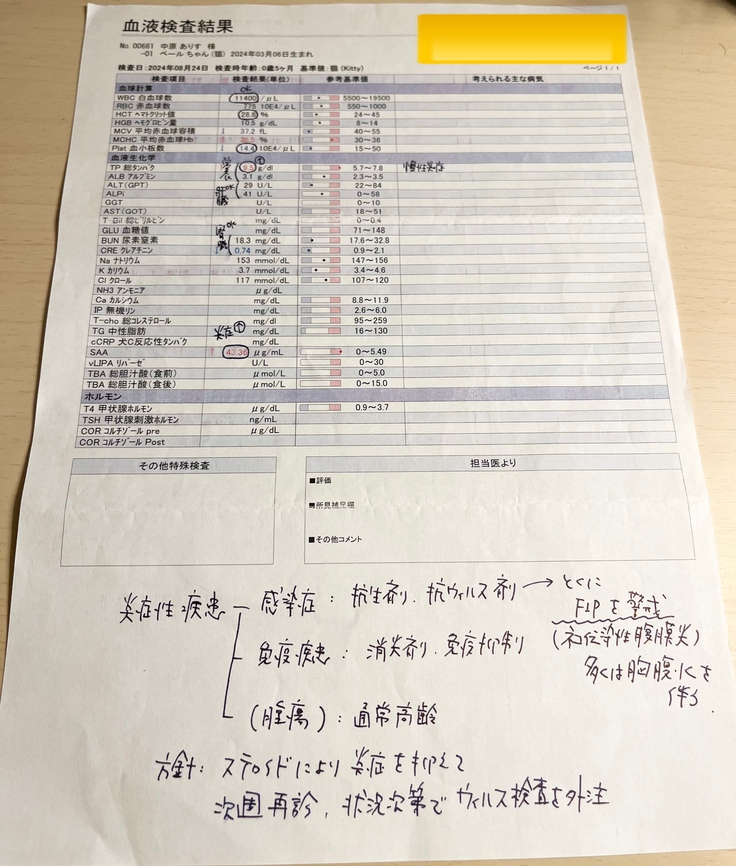 血液検査結果
No. 00661 中原 ありす 様
-01 ベール ちゃん (猫) 2024年03月06日生まれ
検査日:2024年08月24日 検査時年齢:0歳5ヶ月 基準値:猫 (Kitty)
ページ 1 / 1
検査項目 検査結果(単位) 参考基準値 考えられる主な病気
血球計算 OK
WBC 白血球数 11400 /μL 5500~19500
RBC 赤血球数 775 10E4/μL 550~1000
HCT ヘマトクリット値 28.8 % 24~45
HGB ヘモグロビン量 10.5 g/dL 8~14
MCV 平均赤血球容積 ↓ 37.2 fL 40~55
MCHC 平均赤血球Hb % 30~36
Plat 血小板数 ↓ 14.4 10E4/μL 15~50
血液生化学
TP 総タンパク g/dl 5.7~7.8 慢性炎症
ALB アルブミン 3.1 g/dl 2.3~3.5
ALT(GPT) 29 U/L 22~84
ALPi 41 U/L 0~58
GGT U/L 0~10
AST(GOT) U/L 18~51
T-Bil 総ビリルビン mg/dL 0~0.4
GLU 血糖値 mg/dL 71~148
BUN 尿素窒素 18.3 mg/dL 17.6~32.8
CRE クレアチニン 0.74 mg/dL 0.9~2.1
Na ナトリウム 153 mmol/dL 147~156
K カリウム 3.7 mmol/dL 3.4~4.6
Cl クロール 117 mmol/dL 107~120
NH3 アンモニア μg/dL
Ca カルシウム mg/dL 8.8~11.9
IP 無機リン mg/dL 2.6~6.0
T-cho 総コレステロール mg/dl 95~259
TG 中性脂肪 炎症↑ mg/dL 16~130
cCRP 犬C反応性タンパク mg/dL
SAA ↑ 43.36 μg/mL 0~5.49
vLIPA リパーゼ U/L 0~30
TBA 総胆汁酸(食前) μmol/L 0~5.0
TBA 総胆汁酸(食後) μmol/L 0~15.0
ホルモン
T4 甲状腺ホルモン μg/dL 0.9~3.7
TSH 甲状腺刺激ホルモン ng/mL
COR コルチゾール pre μg/dL
COR コルチゾール Post
その他特殊検査
担当医より
■評価
■所見補足欄
■その他コメント
炎症性疾患 感染症:抗生剤、抗ウィルス剤 → とくに
FIPを警戒
(ネコ伝染性腹膜炎)
多くは胸腹水を
伴う.
免疫疾患:消炎剤、免疫抑制
(腫瘍):通常高齢
方針:ステロイドにより炎症を抑えて
次回再診、状況次第でウィルス検査を外注